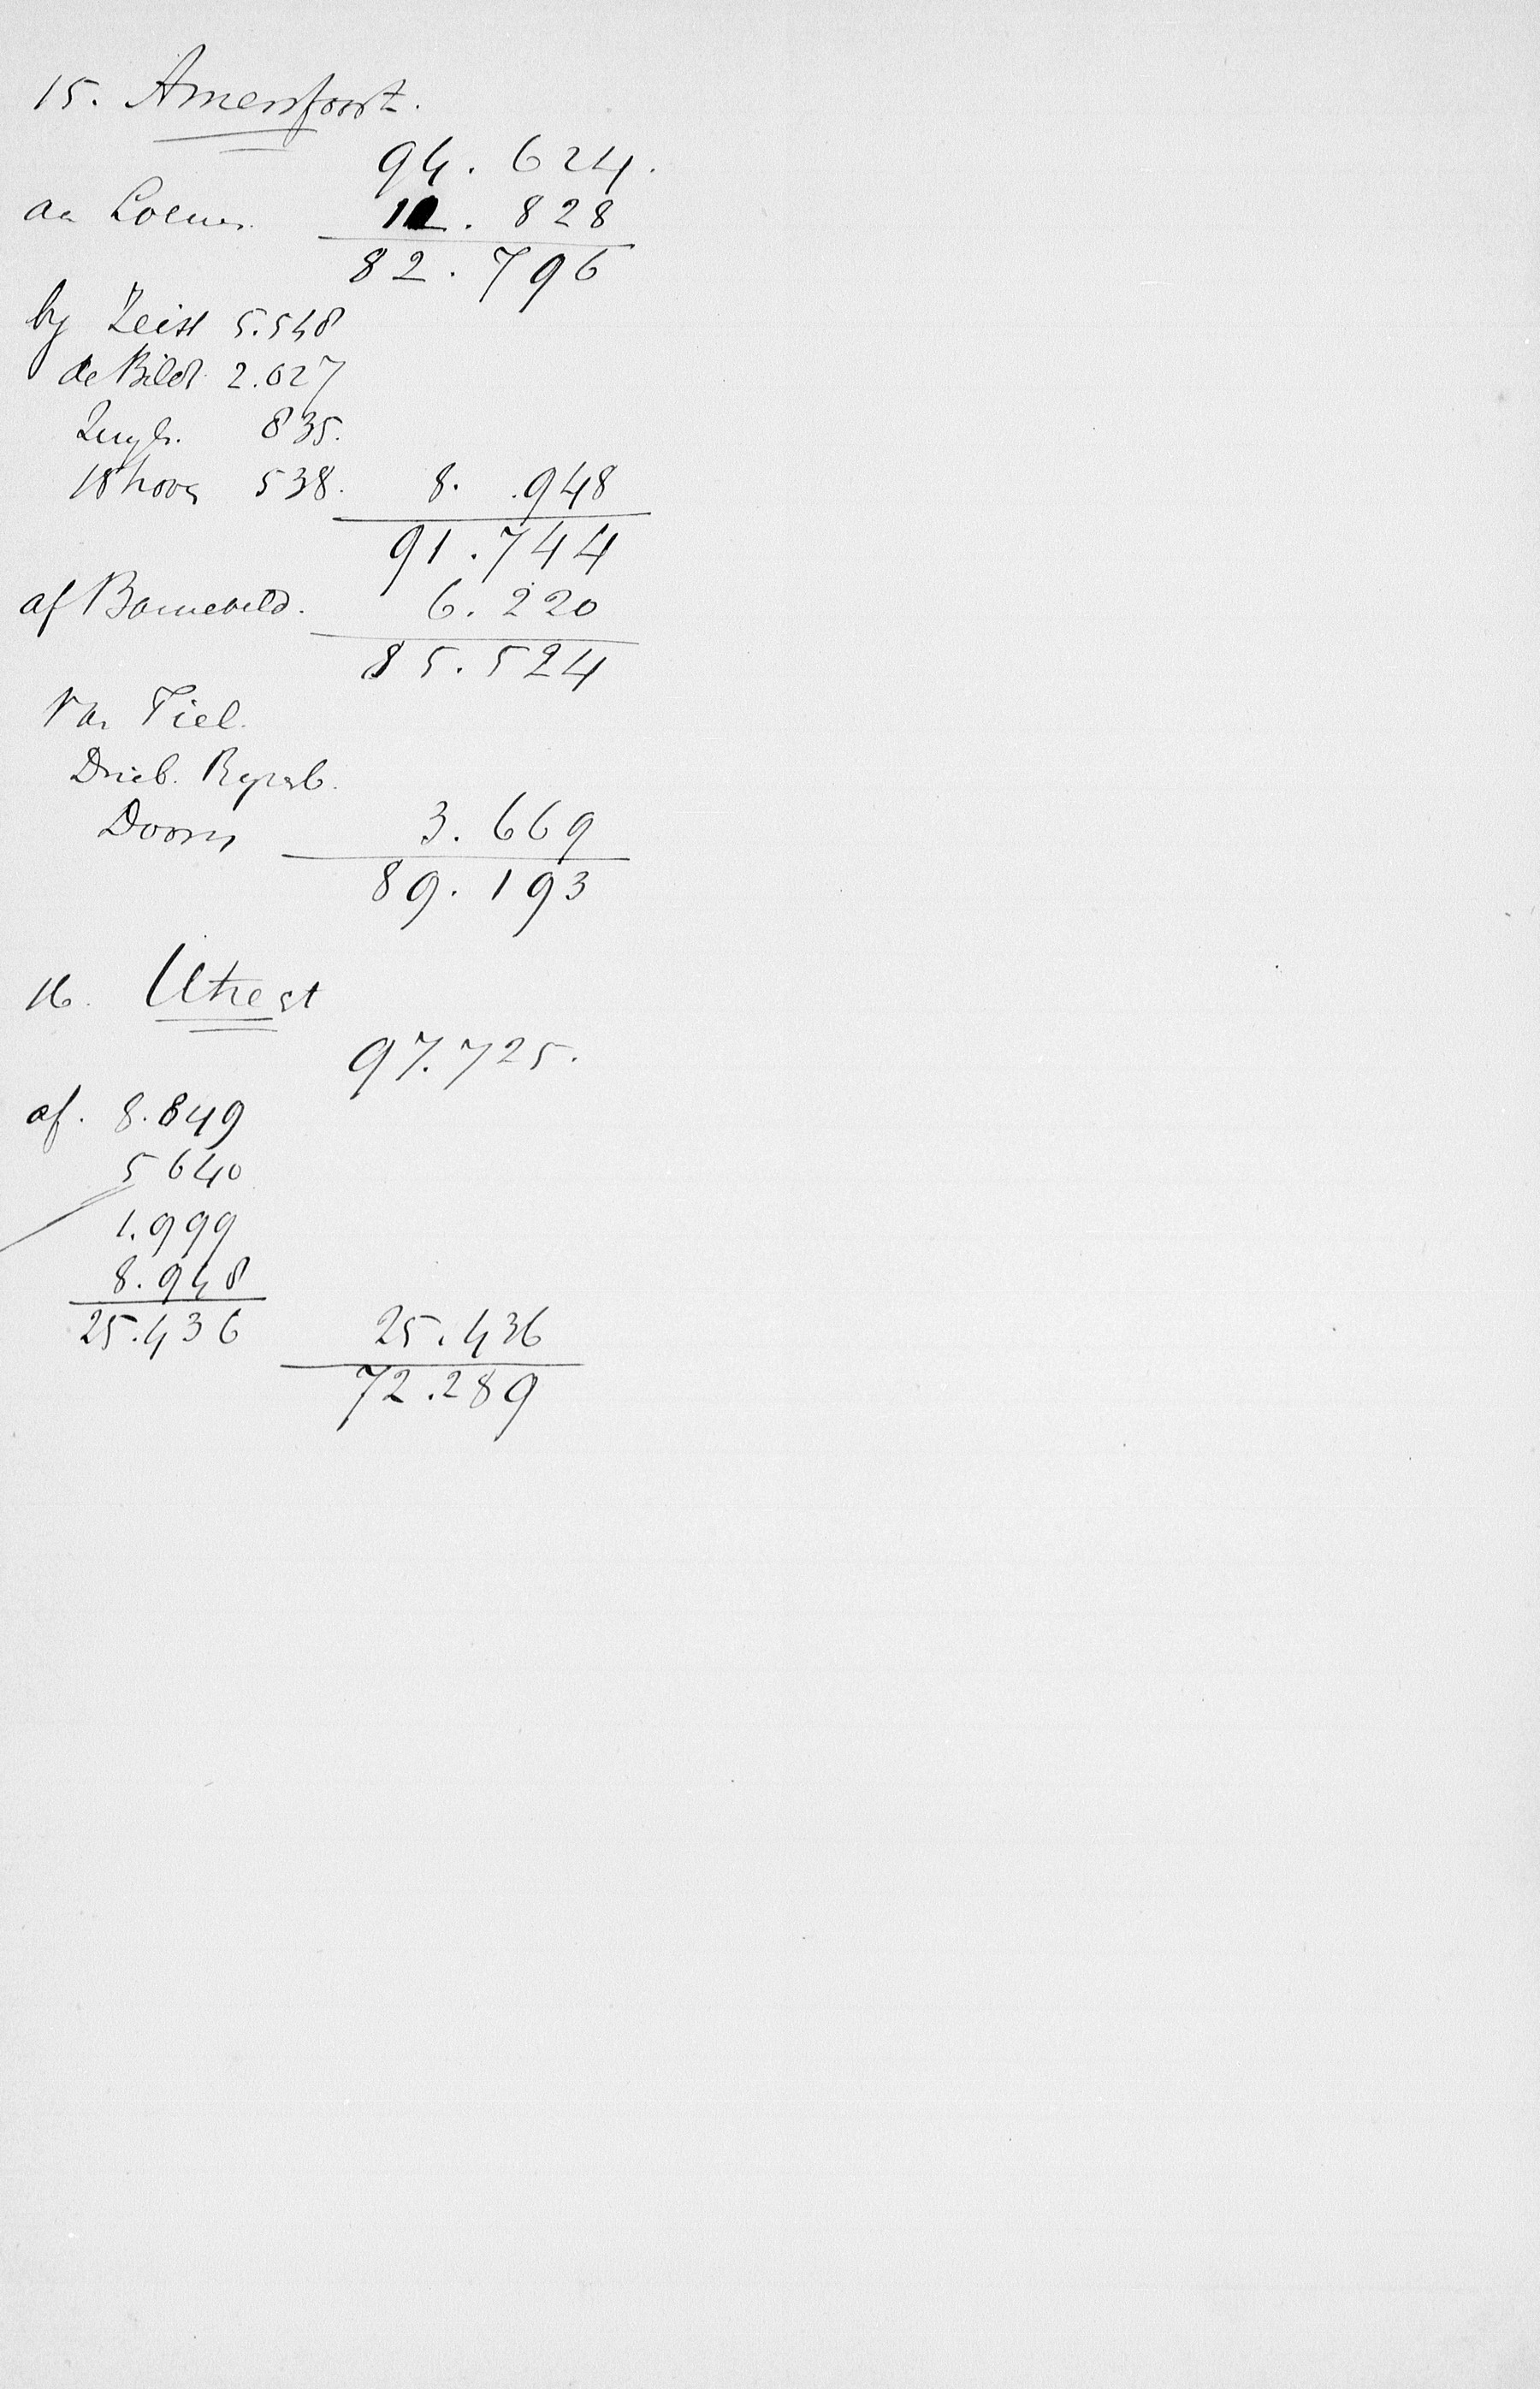 15. Amersfoort.
94.624.
aa Loenen 11.828
82.796
by Zeist 5.548
de Bildt 2.027
Zuyl. 835.
18hoven 538. 8..948
91.744
af Barneveld. 6.220
85.524
Van Tiel.
Drieb. Rysenb.
Doorn 3.669
89.193
16. Utrecht
97.725.
af. 8.849
5640
1.999
8.948
25.436 25.436
72.289